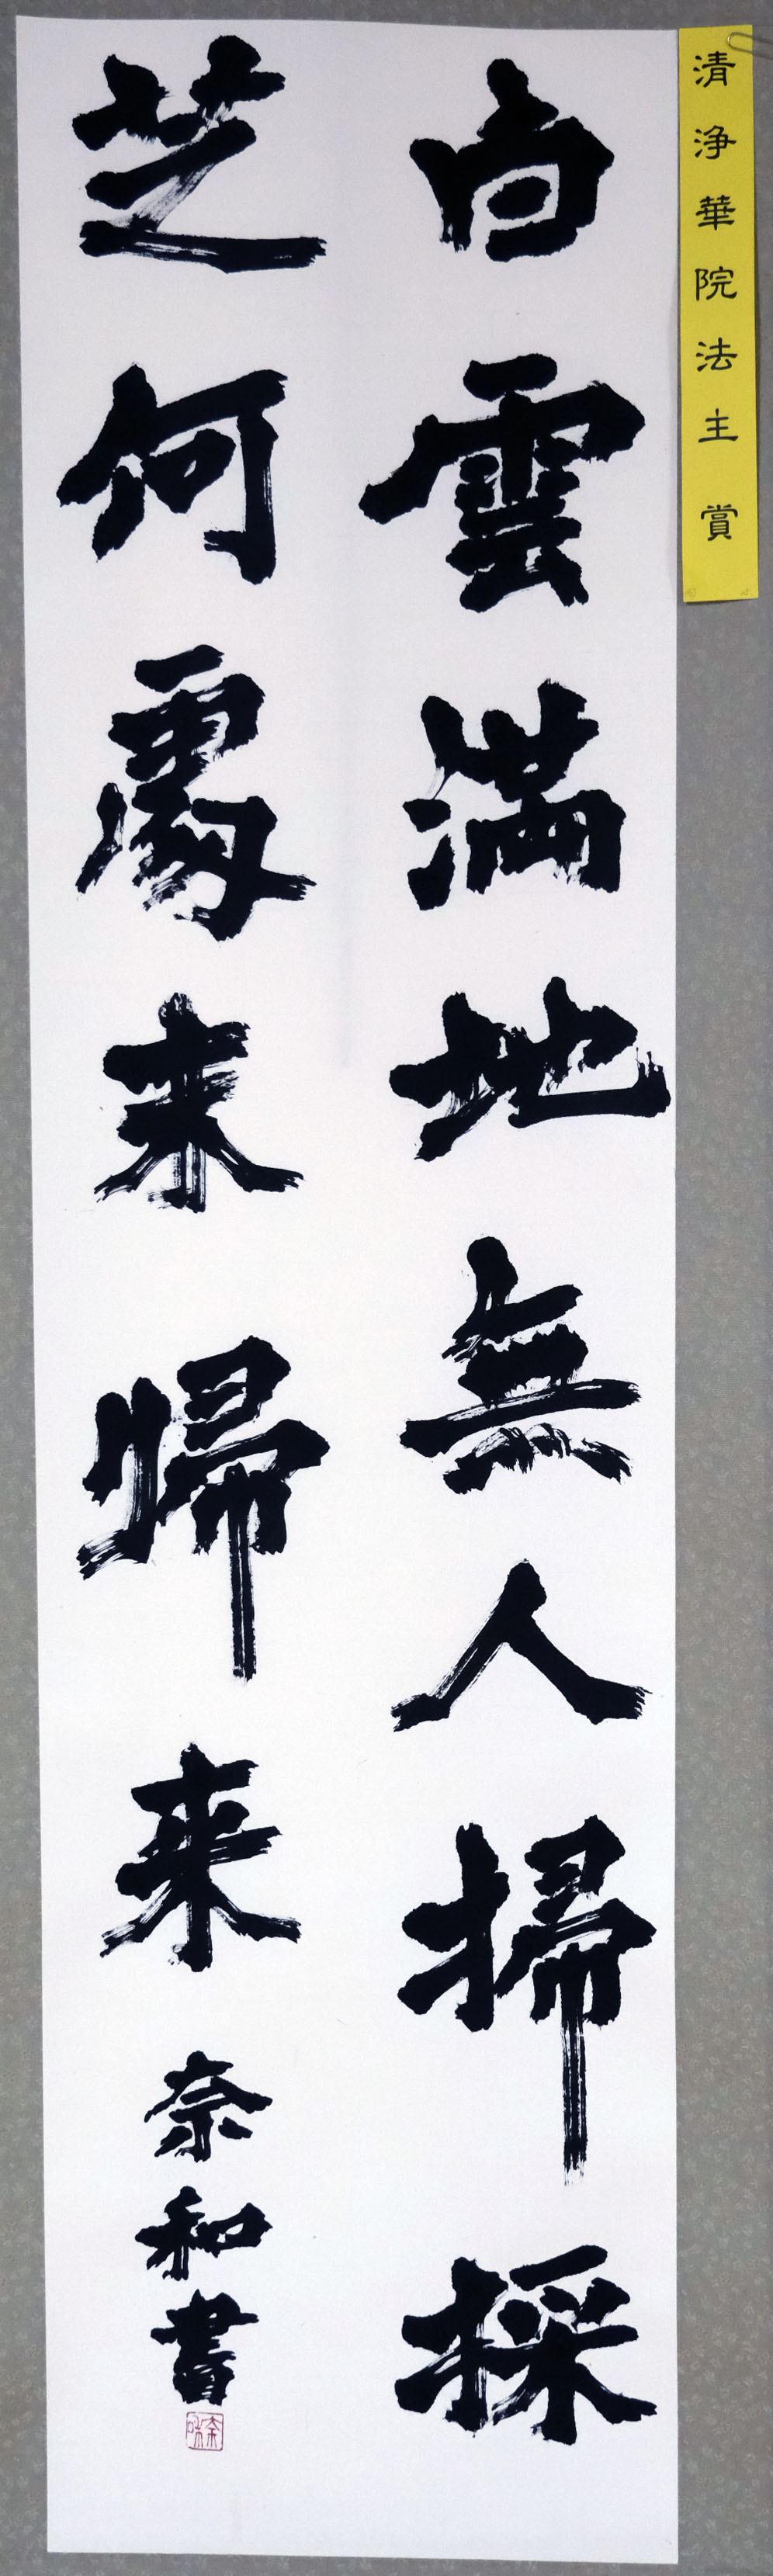 清浄華院法主賞
白雲満地無人掃採
芝何處来歸来
奈和書
奈和